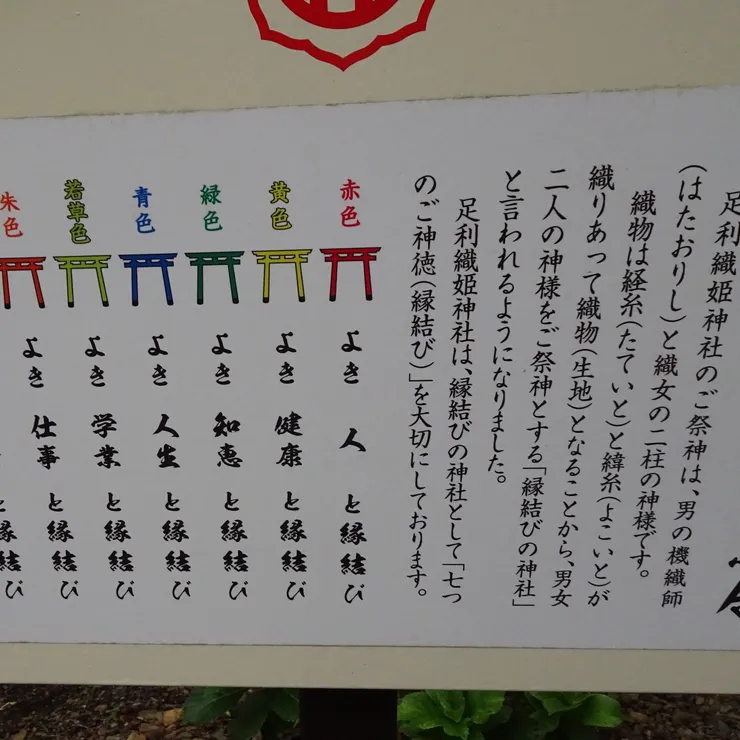 足利織姫神社のご祭神は、男の機織師
(はたおりし)と織女の二柱の神様です。
織物は経糸(たていと)と緯糸(よこいと)が
織りあって織物(生地)となることから、男女
二人の神様をご祭神とする「縁結びの神社」
と言われるようになりました。
足利織姫神社は、縁結びの神社として「七つ
のご神徳(縁結び)」を大切にしております。
赤色 よき 人 と縁結び
黄色 よき 健康 と縁結び
緑色 よき 知恵 と縁結び
青色 よき 人生 と縁結び
若草色 よき 学業 と縁結び
朱色 よき 仕事 と縁結び
と縁結び